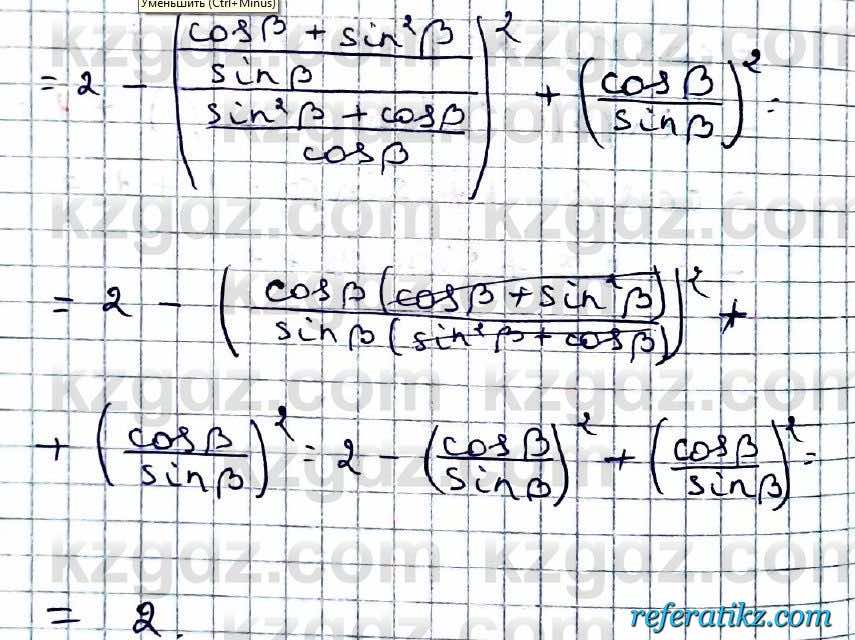 Уменьшить (Ctrl+Minus)
= 2 - ((cosβ + sin²β)/sinβ / (sin²β + cosβ)/cosβ)² + (cosβ/sinβ)² =
= 2 - (cosβ(cosβ + sin²β) / sinβ(sin²β + cosβ))² +
+ (cosβ/sinβ)² = 2 - (cosβ/sinβ)² + (cosβ/sinβ)² =
= 2.
kzgdz.com kzgdz.com
kzgdz.com kzgdz.com
kzgdz.com kzgdz.com
kzgdz.com kzgdz.com
referatikz.com